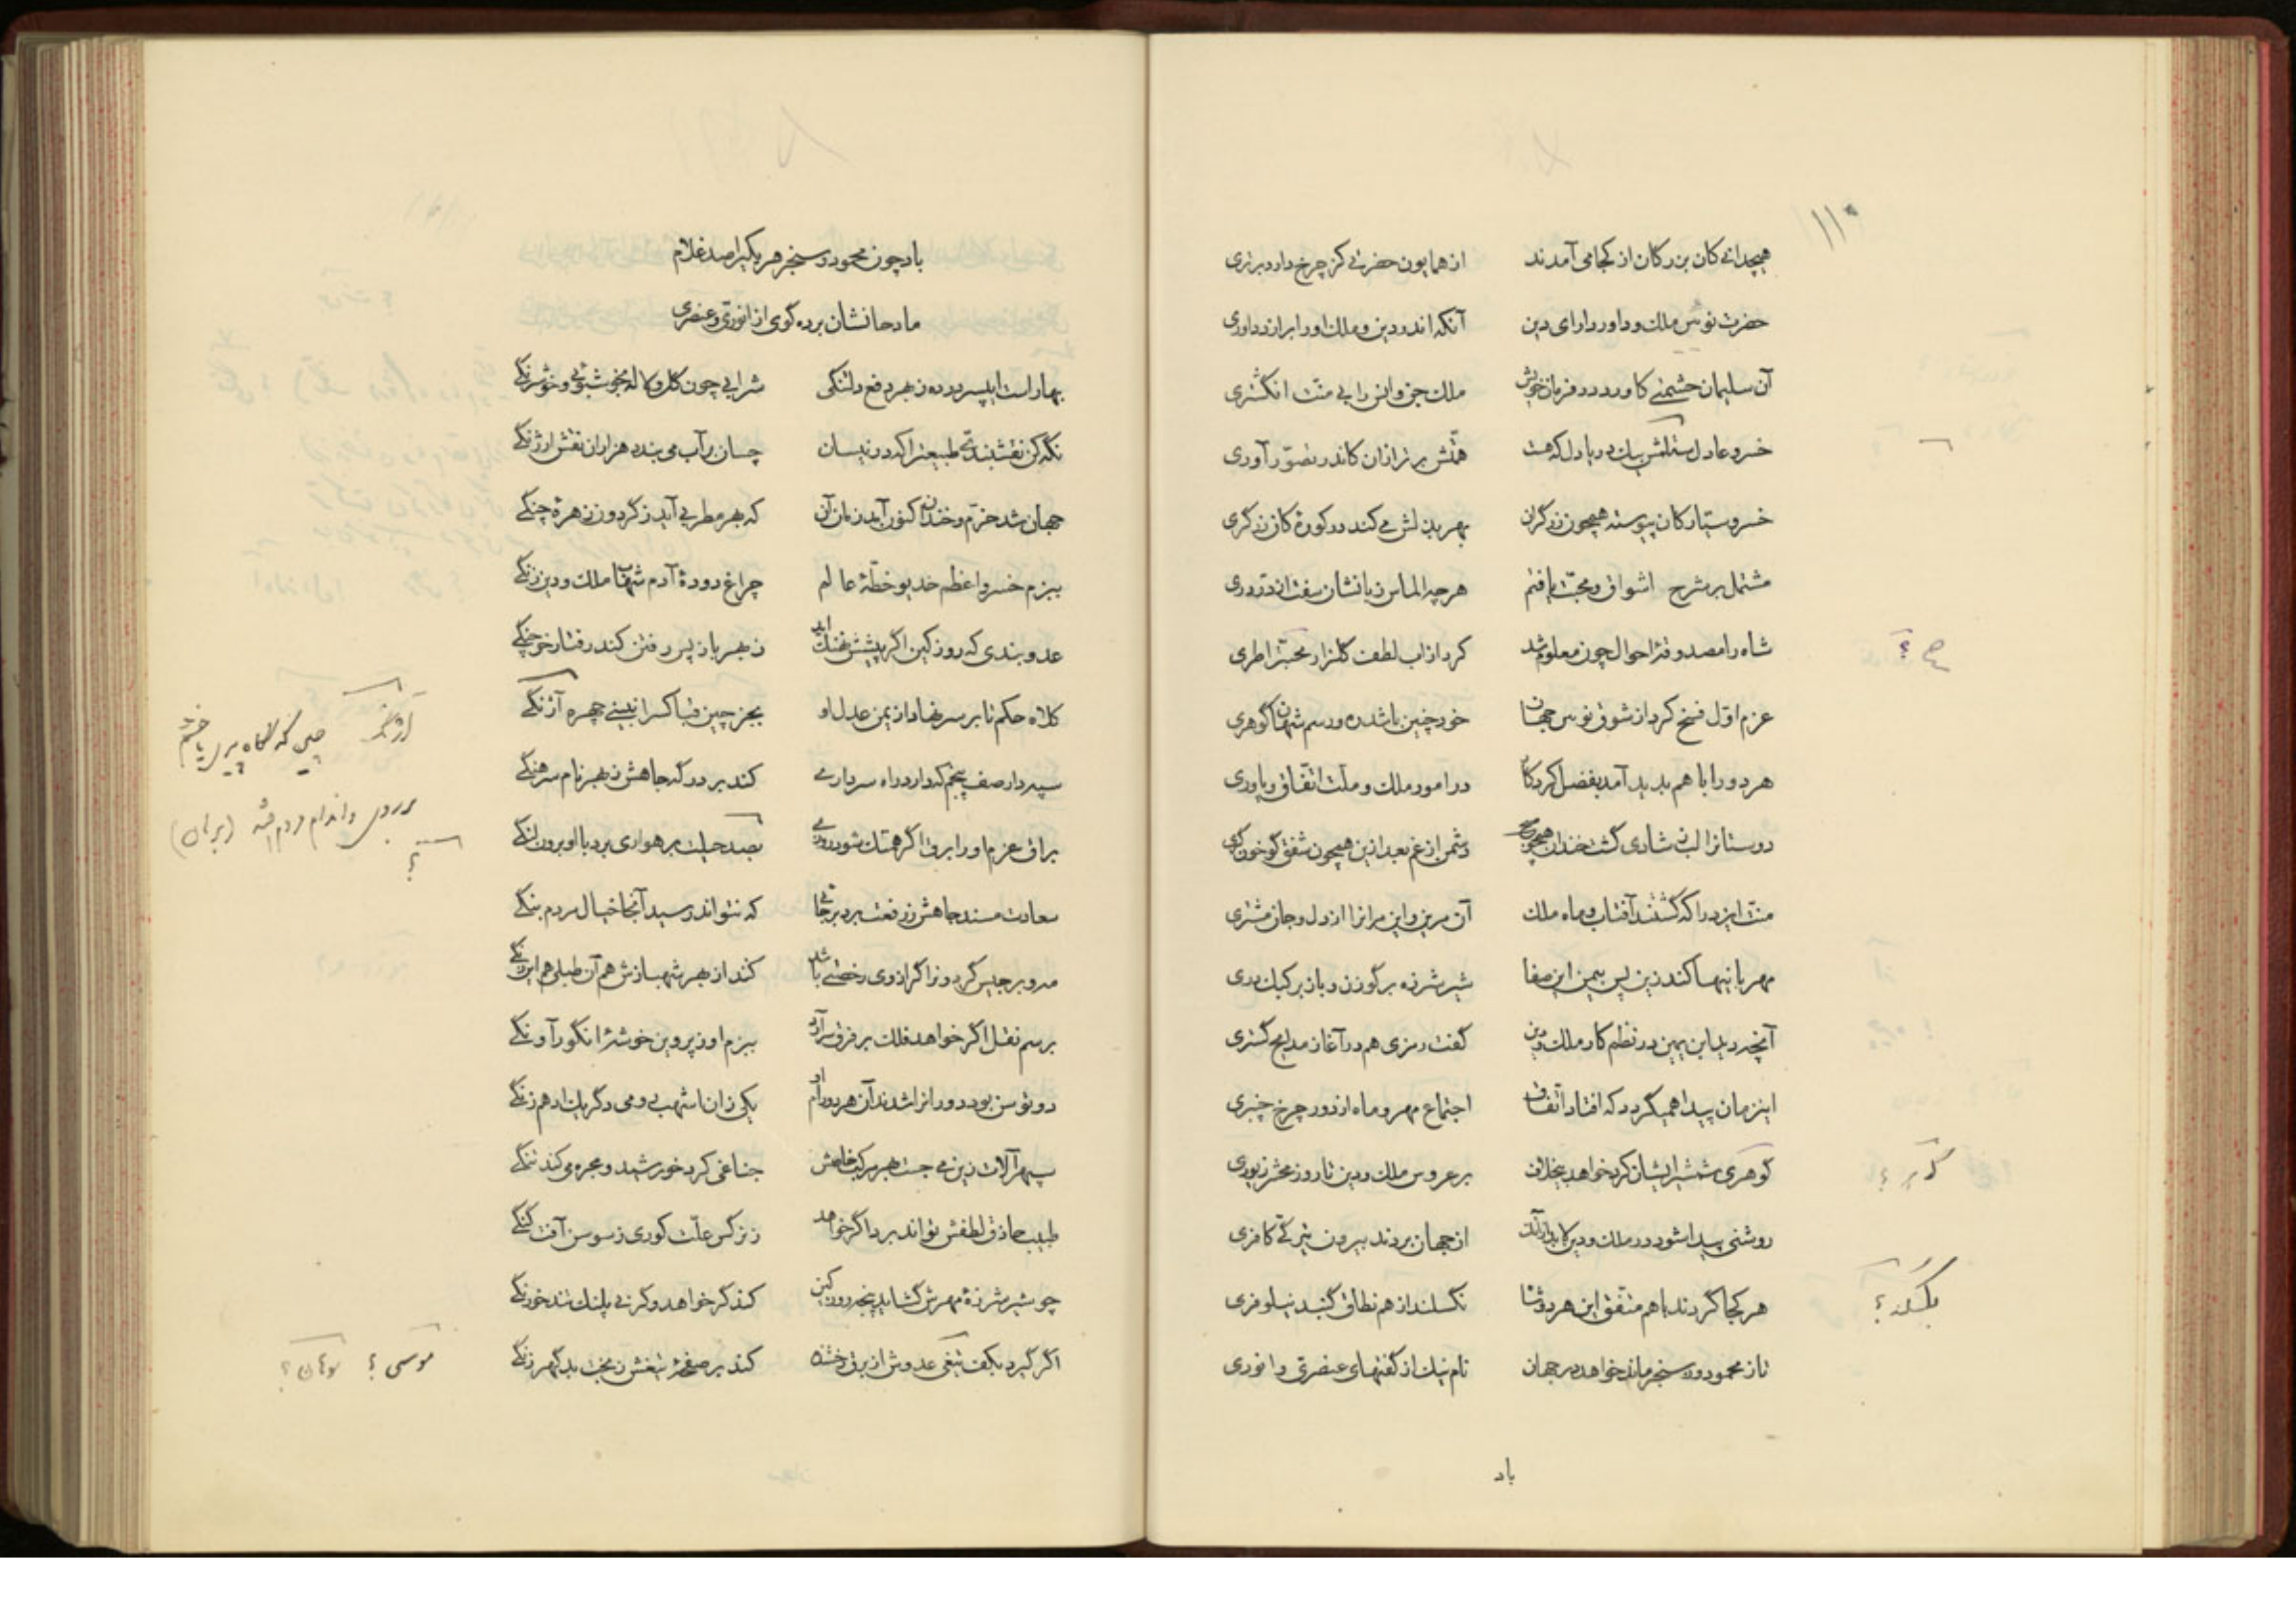 ۱۱۰
هیچدانی کان بزرگان از کجا می آمدند از همایون حضرتی کز چرخ دارد برتری
حضرت نوئین ملک و داور دارای دین آنکه اندر دین و ملک او را برازد داوری
آن سلیمان حشمتی کاورد در فرمان خویش ملک جن و انس را بی منت انگشتری
خسرو عادل دریا دل که هست همتش برتر ازان کاندر تصور آوری
خسرو سیارکان پیوسته همچون زرگران بهر بذلش می کند در کورهٔ کان زرگری
مشتمل بر شرح اشواق و محبت یافتم هرچه الماس زبانشان سفت از در دری
شاه را مصدوقهٔ احوال چون معلوم شد کرد از آب لطف گلزار محبت را طری
ح ؟
عزم اول فسخ کرد از شوق نوئین جهان خود چنین باشد ره و رسم شهان گوهری
هر دو را با هم پدید آمد بفضل کردکار در امور ملک و ملت اتفاق و یاوری
دوستانرا لب ز شادی گشت خندان همچو دشمن از غم بعد ازین همچون شفق گو خون گری
منت ایزد را که گشتند آفتاب و ماه ملک آن مرین و این مرانرا از دل و جان مشتری
مهربانیها کند زین پس بیمن این صفا شیر شرزه بر گوزن و باز بر کبک دری
آنچه دید ابن یمین در نظم کار ملک و دین گفت رمزی هم در آغاز مدایح گستری
اینزمان پیدا همیگردد که افتاد اتفاق اجتماع مهر و ماه از دور چرخ چنبری
گوهری شمشیر ایشان کرد خواهد بیخلاف بر عروس ملک و دین تا روز محشر زیوری
روشنی پیدا شود در ملک و دین از جهان بردند بیرون تیرگی کافری
هر کجا گردند با هم متفق این هر دو نگسلند از هم نطاق گنبد نیلوفری
بگسلد ؟
تا ز محمود و ز سنجر ماند خواهد در جهان نام نیک از گفتهای عنصری و انوری
باد
باد چون محمود و سنجر هر یکیرا صد غلام
مادحانشان برده گوی از انوری و عنصری
بهار است ای پسر در ده ز بهر دفع دلتنگی شرابی چون گل و لاله بخوشبوئی و خوشرنگی
نگه کن نقشبندی طبیعترا که در نیسان چسان بر آب می بندد هزاران نقش ارژنگی
جهان شد خرم و خندان کنون آمد زمان آن که بهر مطربی آید ز گردون زهرهٔ چنگی
ببزم خسرو اعظم خدیو خطهٔ عالم چراغ دودهٔ آدم شهاب ملک و دین زنگی
عدو بندی که روز کین اگر پیشش نهنگ آید ز بهر باز پس رفتن کند رفتار خرچنگی
کلاه حکم تا بر سر نهاد از یمن عدل او بجز چین قبا کس را نبینی چهره آژنگی
آژنگ چین که بگاه پیری یا خشم
بر روی و اندام مردم افتد (برهان)
سپهدار صف پنجم که دارد راه سرداری کند بر درگه جاهش ز بهر نام سرهنگی
براق عزم او را برق اگر همتک شود روزی بصد حیلت برهواری برد پالو برون لنگی
؟
سعادت مسند جاهش ز رفعت برد بر جائی که نتواند رسید آنجا خیال مردم بنگی
مه و برجیس گردونرا گر از وی رخصتی باشد کند از بهر شهبازش هم آن طبلی هم این زنگی
برسم نقل اگر خواهد فلک بر فرق سر آرد ببزم او ز پروین خوشهٔ انگور آونگی
دو توسن بود دورانرا شدند آن هر دو رام او یکی زان اشهب رومی دگر یک ادهم زنگی
سپهر آلات زین می جست بهر مرکب خاصش جناغی کرد خورشید و مجره می کند تنگی
طبیب حاذق لطفش تواند برد اگر خواهد ز نرگس علت کوری ز سوسن آفت گنگی
چو شیر شرزهٔ مهرش گشاید پنجه روز کین کند گر خواهد و گر نی پلنگ تند خو رنگی
اگر گیرد بکف تیغی عدوش از برق رخشنده کند بر صفحهٔ تیغش ز بخت بد گهر زنگی
موسی ؟